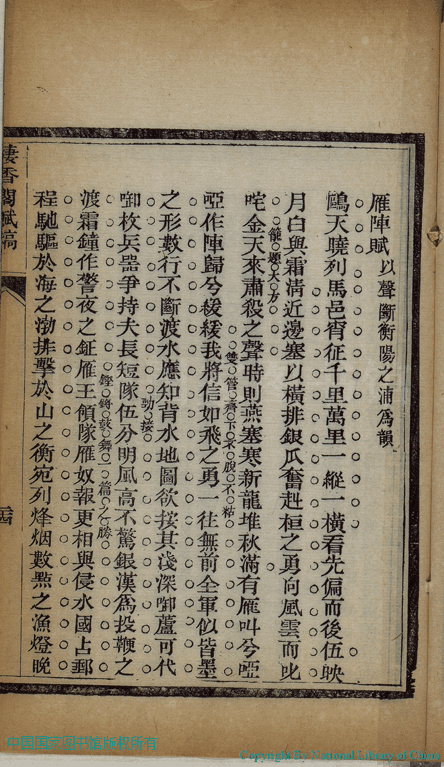 雁陣賦以聲斷衡陽之浦爲韻
鴎天曉列馬邑宵征千里萬里一縱一橫看先偏而後伍映
月白與霜淸近邊塞以橫排銀瓜奮赳桓之勇向風雲而叱
籠題大方
咤金天來肅殺之聲時則燕塞寒新龍堆秋滿有雁叫兮啞
雙管齊下不脫不粘
啞作陣歸兮緩緩我將信如飛之勇一往無前全軍似皆墨
之形數行不斷渡水應知背水地圖欲按其淺深啣蘆可代
勁接
啣枚兵器爭持夫長短隊伍分明風高不驚銀漢爲投鞭之
鏗鏘鼓舞一篇之勝
渡霜鐘作警夜之鉦雁王領隊雁奴報更相與侵水國占郵
程馳驅於海之渤排擊於山之衡宛列烽烟數點之漁燈晚
棲香閣賦稿
中国国家图书馆版权所有
Copyright By National Library of China